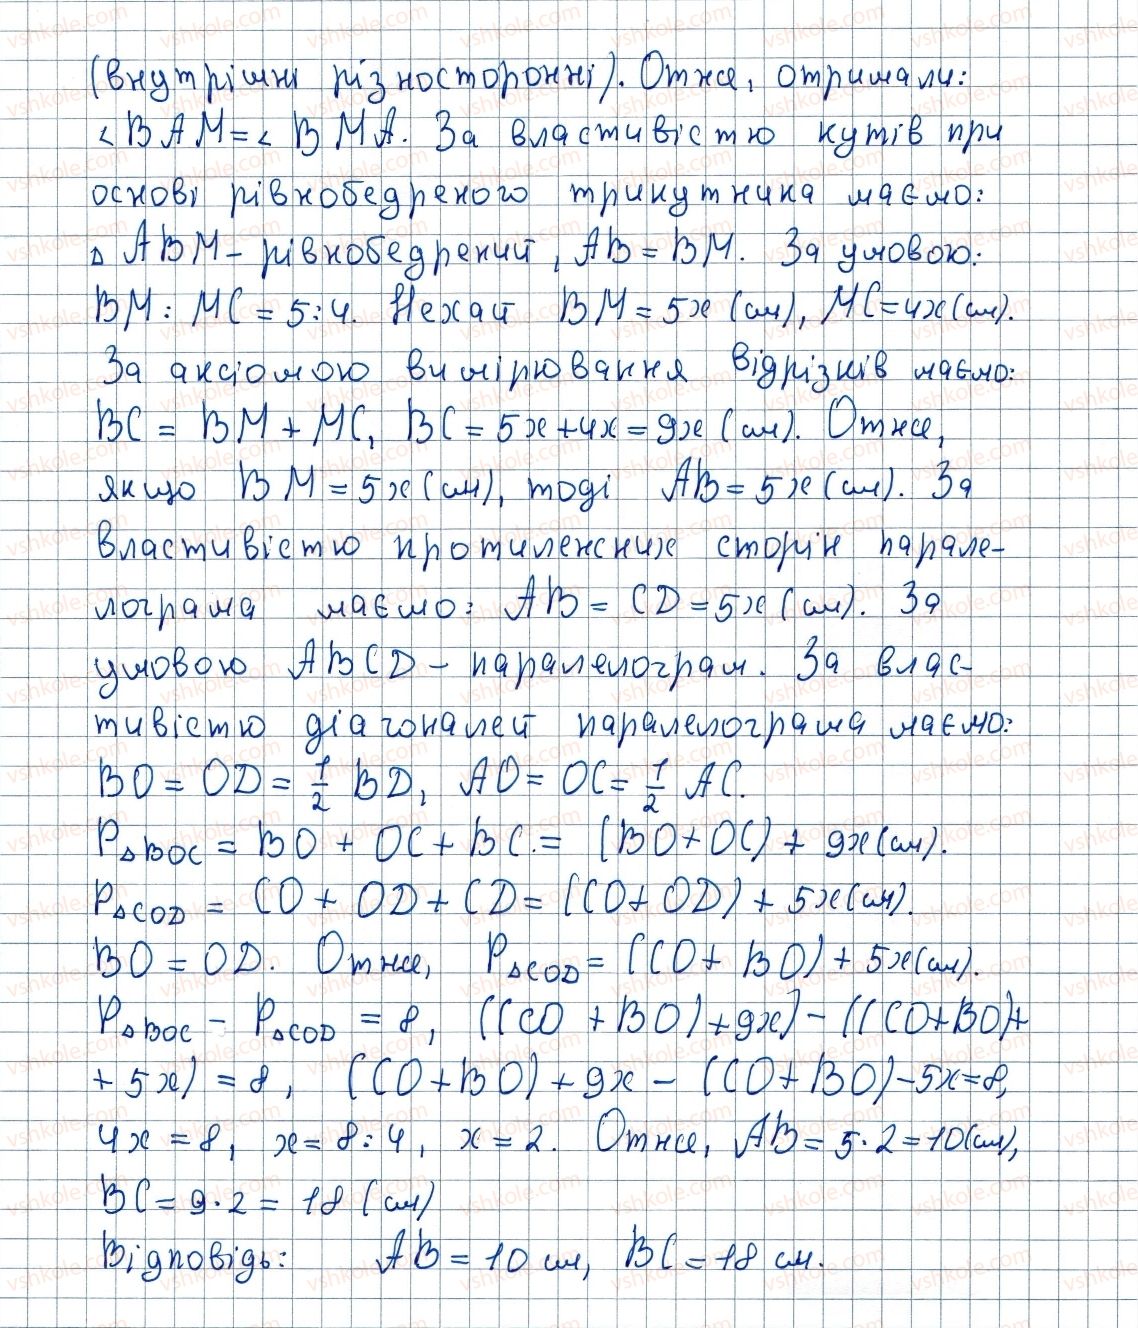 (внутрішні різносторонні). Отже, отримали:
∠BAM=∠BMA. За властивістю кутів при
основі рівнобедреного трикутника маємо:
△ABM – рівнобедрений, AB = BM. За умовою:
BM : MC = 5:4. Нехай BM = 5x (см), MC = 4x (см).
За аксіомою вимірювання відрізків маємо:
BC = BM + MC, BC = 5x+4x = 9x (см). Отже,
якщо BM = 5x (см), тоді AB = 5x (см). За
властивістю протилежних сторін парале-
лограма маємо: AB = CD = 5x (см). За
умовою ABCD – паралелограм. За влас-
тивістю діагоналей паралелограма маємо:
BO = OD = 1/2 BD, AO = OC = 1/2 AC.
P△BOC = BO + OC + BC = (BO+OC) + 9x (см).
P△COD = CO + OD + CD = (CO+OD) + 5x (см).
BO = OD. Отже, P△COD = (CO + BO) + 5x (см).
P△BOC – P△COD = 8, ((CO + BO) + 9x) – ((CO+BO)+
+ 5x) = 8, (CO+BO) + 9x – (CO+BO) – 5x = 8,
4x = 8, x = 8 : 4, x = 2. Отже, AB = 5·2 = 10 (см),
BC = 9·2 = 18 (см)
Відповідь: AB = 10 см, BC = 18 см.